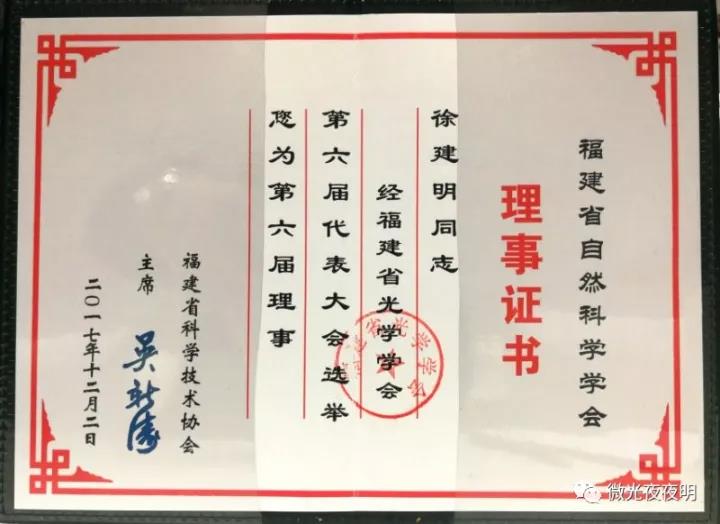 福建省自然科学学会
理事证书
徐建明同志
经福建省光学学会
第六届代表大会选举
您为第六届理事
福建省科学技术协会
主席
二〇一七年十二月二日
福建省光学学会
微光夜夜明